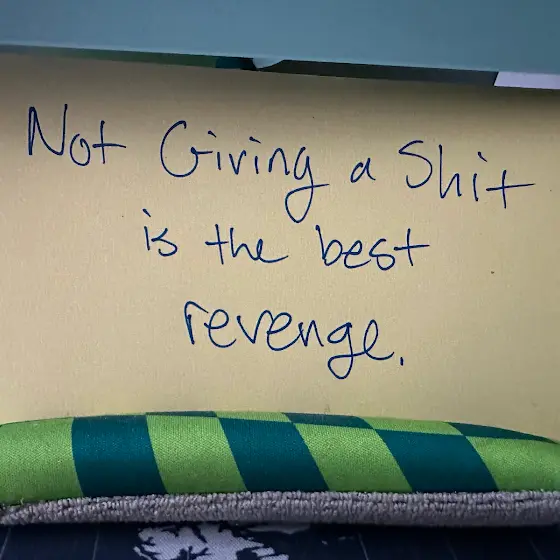 Not Giving a Shit
is the best
revenge.